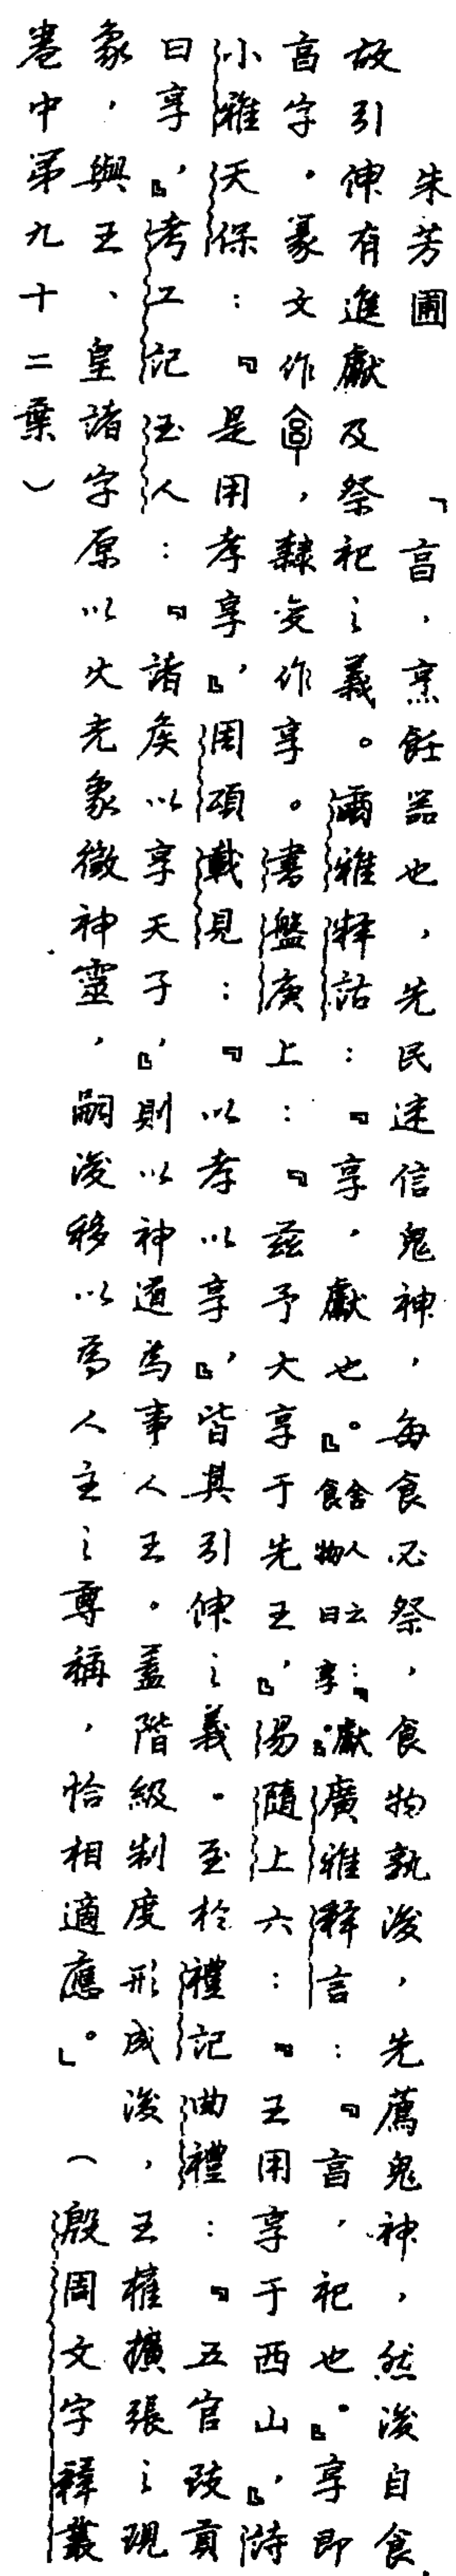 朱芳圃　「亯，烹飪器也，先民迷信鬼神，每食必祭，食物孰後，先薦鬼神，然後自食．
故引伸有進獻及祭祀之義。爾雅釋詁：『享，獻也。』舍人云：『獻食物曰享。』廣雅釋言：『亯，祀也。』享即
亯字。篆文作，隸变作享。書盤庚上：『茲予大享于先王』，易隨上六：『王用享于西山』，詩
小雅天保：『是用孝享』，周頌載見：『以孝以享』，皆其引伸之義。至於禮記曲禮：『五官致貢
曰享』，考工記玉人：『諸矦以享天子』，則以神道為事人王。蓋階級制度形成後，王權擴張之現
象，與王、皇諸字原以火光象徵神靈，嗣後移以為人主之尊稱，恰相適應。」（殷周文字釋叢
卷中第九十二葉）